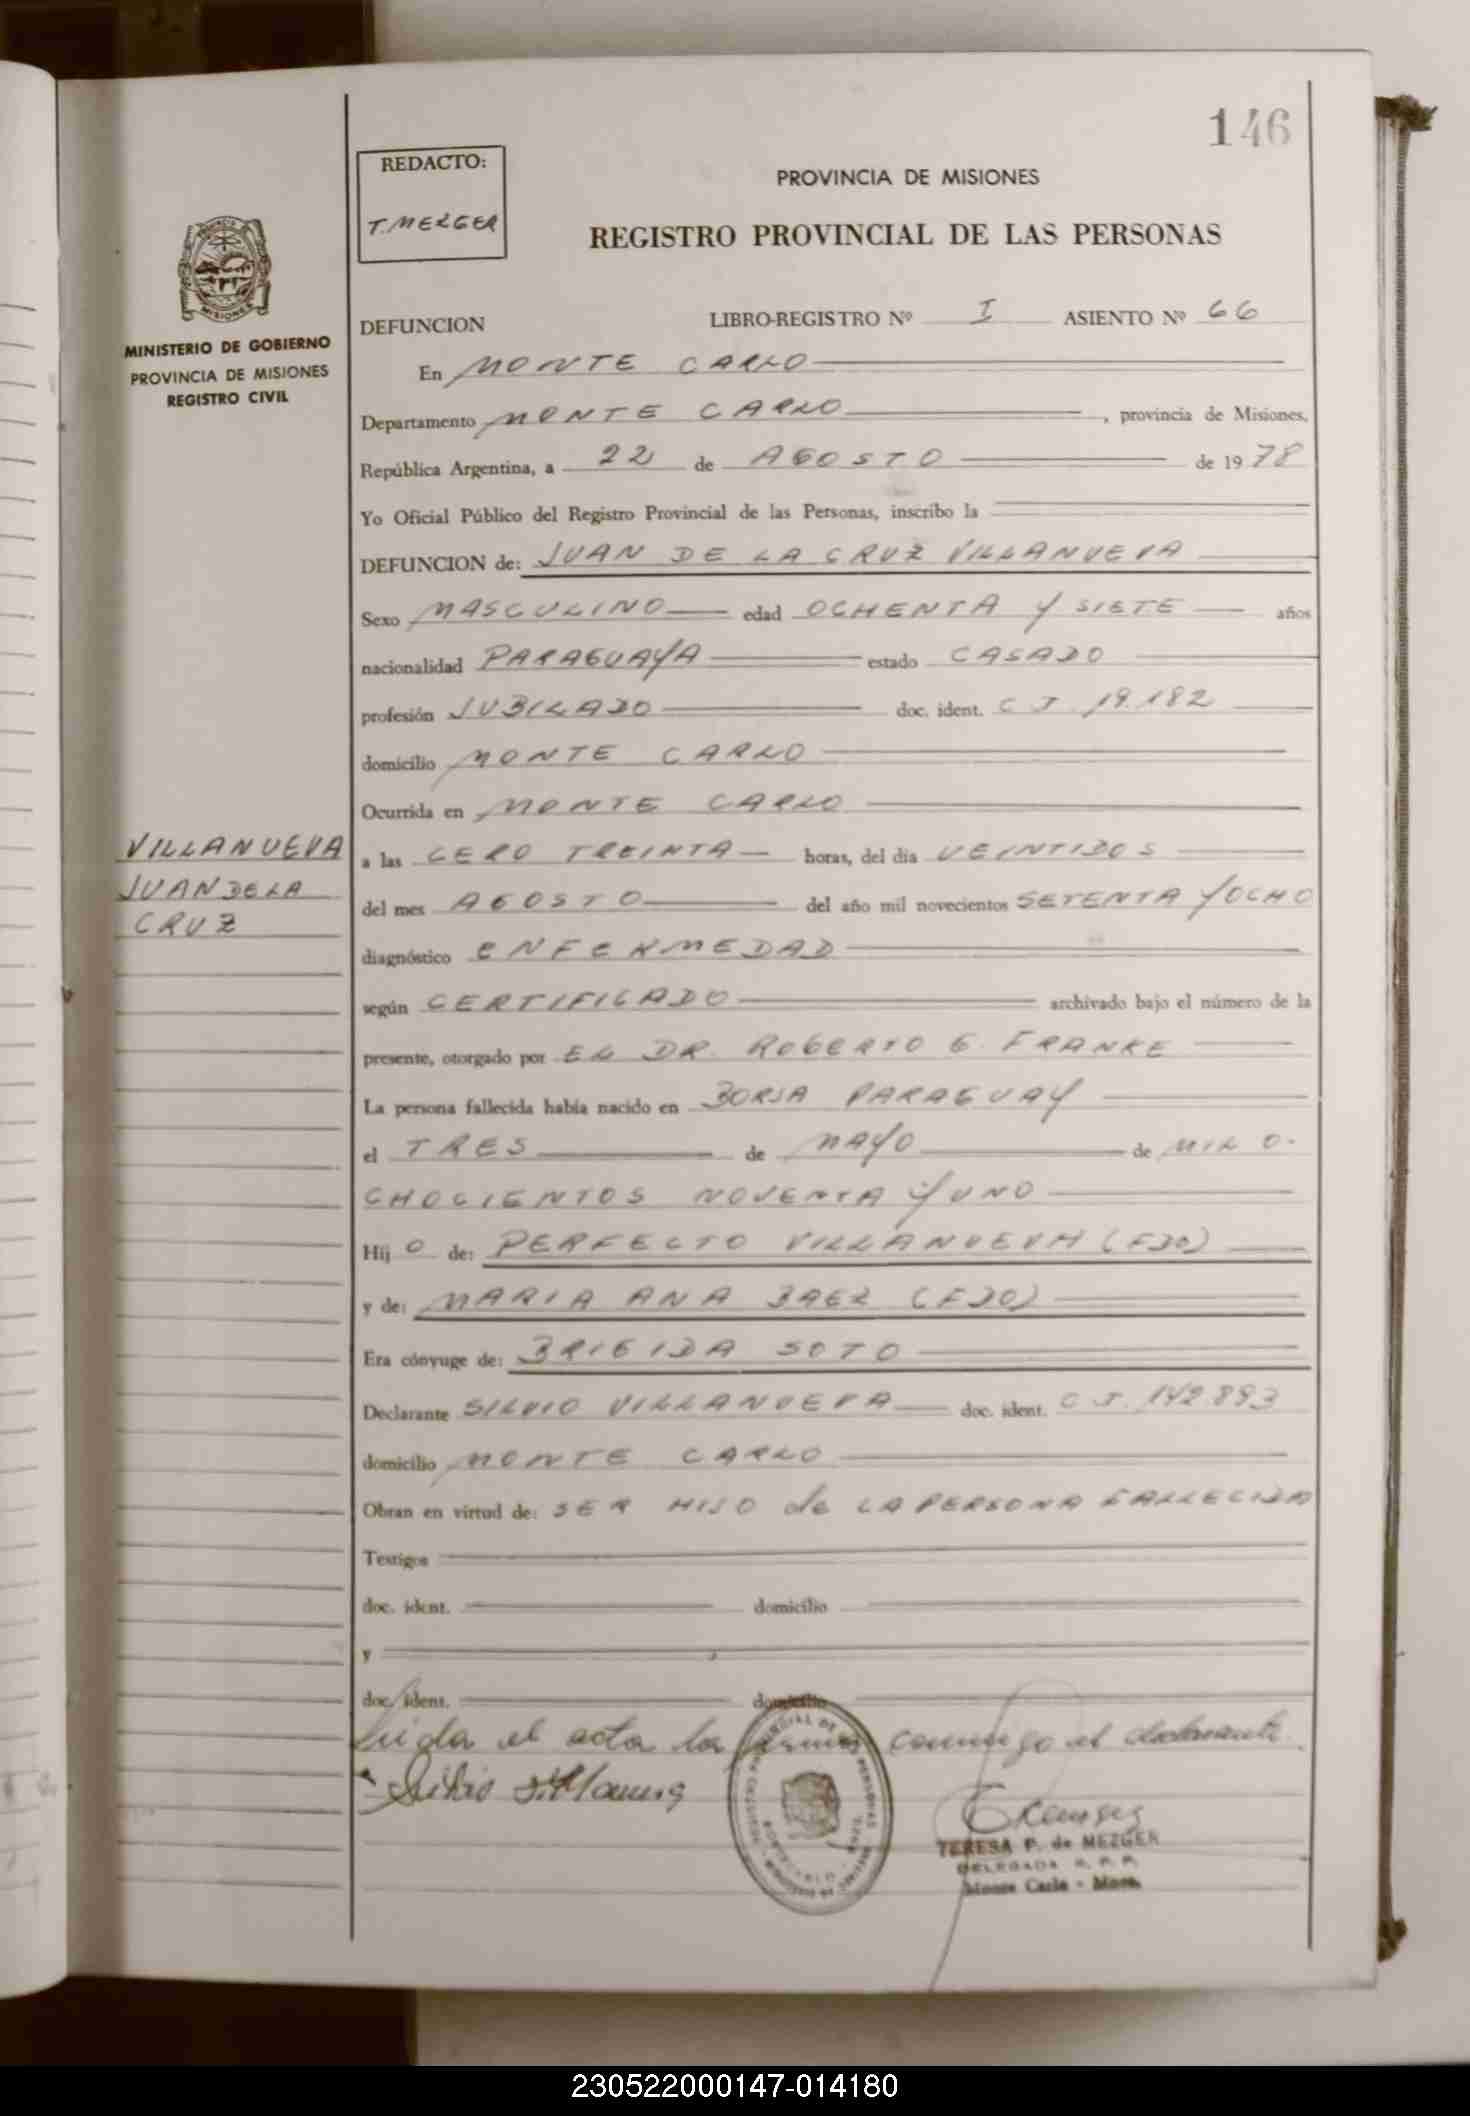 146
REDACTO:
T. MEZGER
PROVINCIA DE MISIONES
REGISTRO PROVINCIAL DE LAS PERSONAS
MISIONES
MINISTERIO DE GOBIERNO
PROVINCIA DE MISIONES
REGISTRO CIVIL
DEFUNCION LIBRO-REGISTRO Nº I ASIENTO Nº 66
En MONTE CARLO
Departamento MONTE CARLO, provincia de Misiones,
República Argentina, a 22 de AGOSTO de 1978
Yo Oficial Público del Registro Provincial de las Personas, inscribo la
DEFUNCION de: JUAN DE LA CRUZ VILLANUEVA
Sexo MASCULINO edad OCHENTA Y SIETE años
nacionalidad PARAGUAYA estado CASADO
profesión JUBILADO doc. ident. C I. 19.182
domicilio MONTE CARLO
Ocurrida en MONTE CARLO
VILLANUEVA
JUAN DE LA
CRUZ
a las CERO TREINTA horas, del día VEINTIDOS
del mes AGOSTO del año mil novecientos SETENTA Y OCHO
diagnóstico ENFERMEDAD
según CERTIFICADO archivado bajo el número de la
presente, otorgado por EL DR. ROBERTO G. FRANKE
La persona fallecida había nacido en BORJA PARAGUAY
el TRES de MAYO de MIL O-
CHOCIENTOS NOVENTA Y UNO
Hij O de: PERFECTO VILLANUEVA (FDO)
y de: MARIA ANA BAEZ (FDO)
Era cónyuge de: BRIGIDA SOTO
Declarante SILVIO VILLANUEVA doc. ident. C I. 142.893
domicilio MONTE CARLO
Obran en virtud de: SER HIJO de LA PERSONA FALLECIDA
Testigos
doc. ident. domicilio
y
doc. ident. domicilio
Leída el acta la firma conmigo el declarante.
Silvio Villanueva
TERESA P. de MEZGER
DELEGADA R. P. P.
Monte Carlo - Mnes.
230522000147-014180